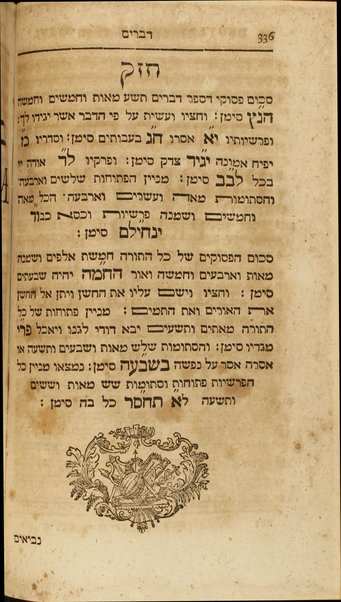 336
דברים
חזק
סכום פסוקי דספר דברים תשע מאות וחמשים וחמשה
הנ״ץ סימן : וחציו ועשית על פי הדבר אשר יגידו לך :
ופרשיותיו י״א אסרו ח״ג בעבותים סימן : וסדריו כ״ז
יפיח אמונה יגיד צדק סימן : ופרקיו ל״ד אודה יי
בכל לבב סימן : מניין הפתוחות שלשים וארבעה
והסתומות מאה ועשרים וארבעה הכל מאה
וחמשים ושמנה פרשיות וכסא כבוד
ינחילם סימן :
סכום הפסוקים של כל התורה חמשת אלפים ושמנה
מאות וארבעים וחמשה ואור החמה יהיה שבעתים
סימן : וחציו וישם עליו את החשן ויתן אל החשן
את האורים ואת התמים : מניין פתוחות של כל
התורה מאתים ותשעים יבא דודי לגנו ויאכל פרי
מגדיו סימן : והסתומות שלש מאות ושבעים ותשעה או
אסרה אסר על נפשה בשבעה סימן : נמצאו מניין כל
הפרשיות פתוחות וסתומות שש מאות וששים
ותשעה לא תחסר כל בה סימן :
נביאים